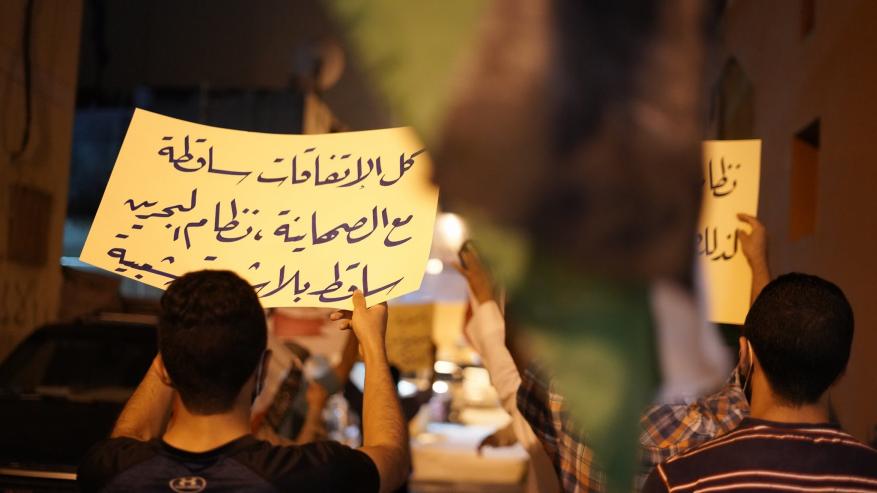 كل الإتفاقات ساقطة
مع الصهاينة، نظام البحرين
ساقط بلا شعبية
نظام
لذلك